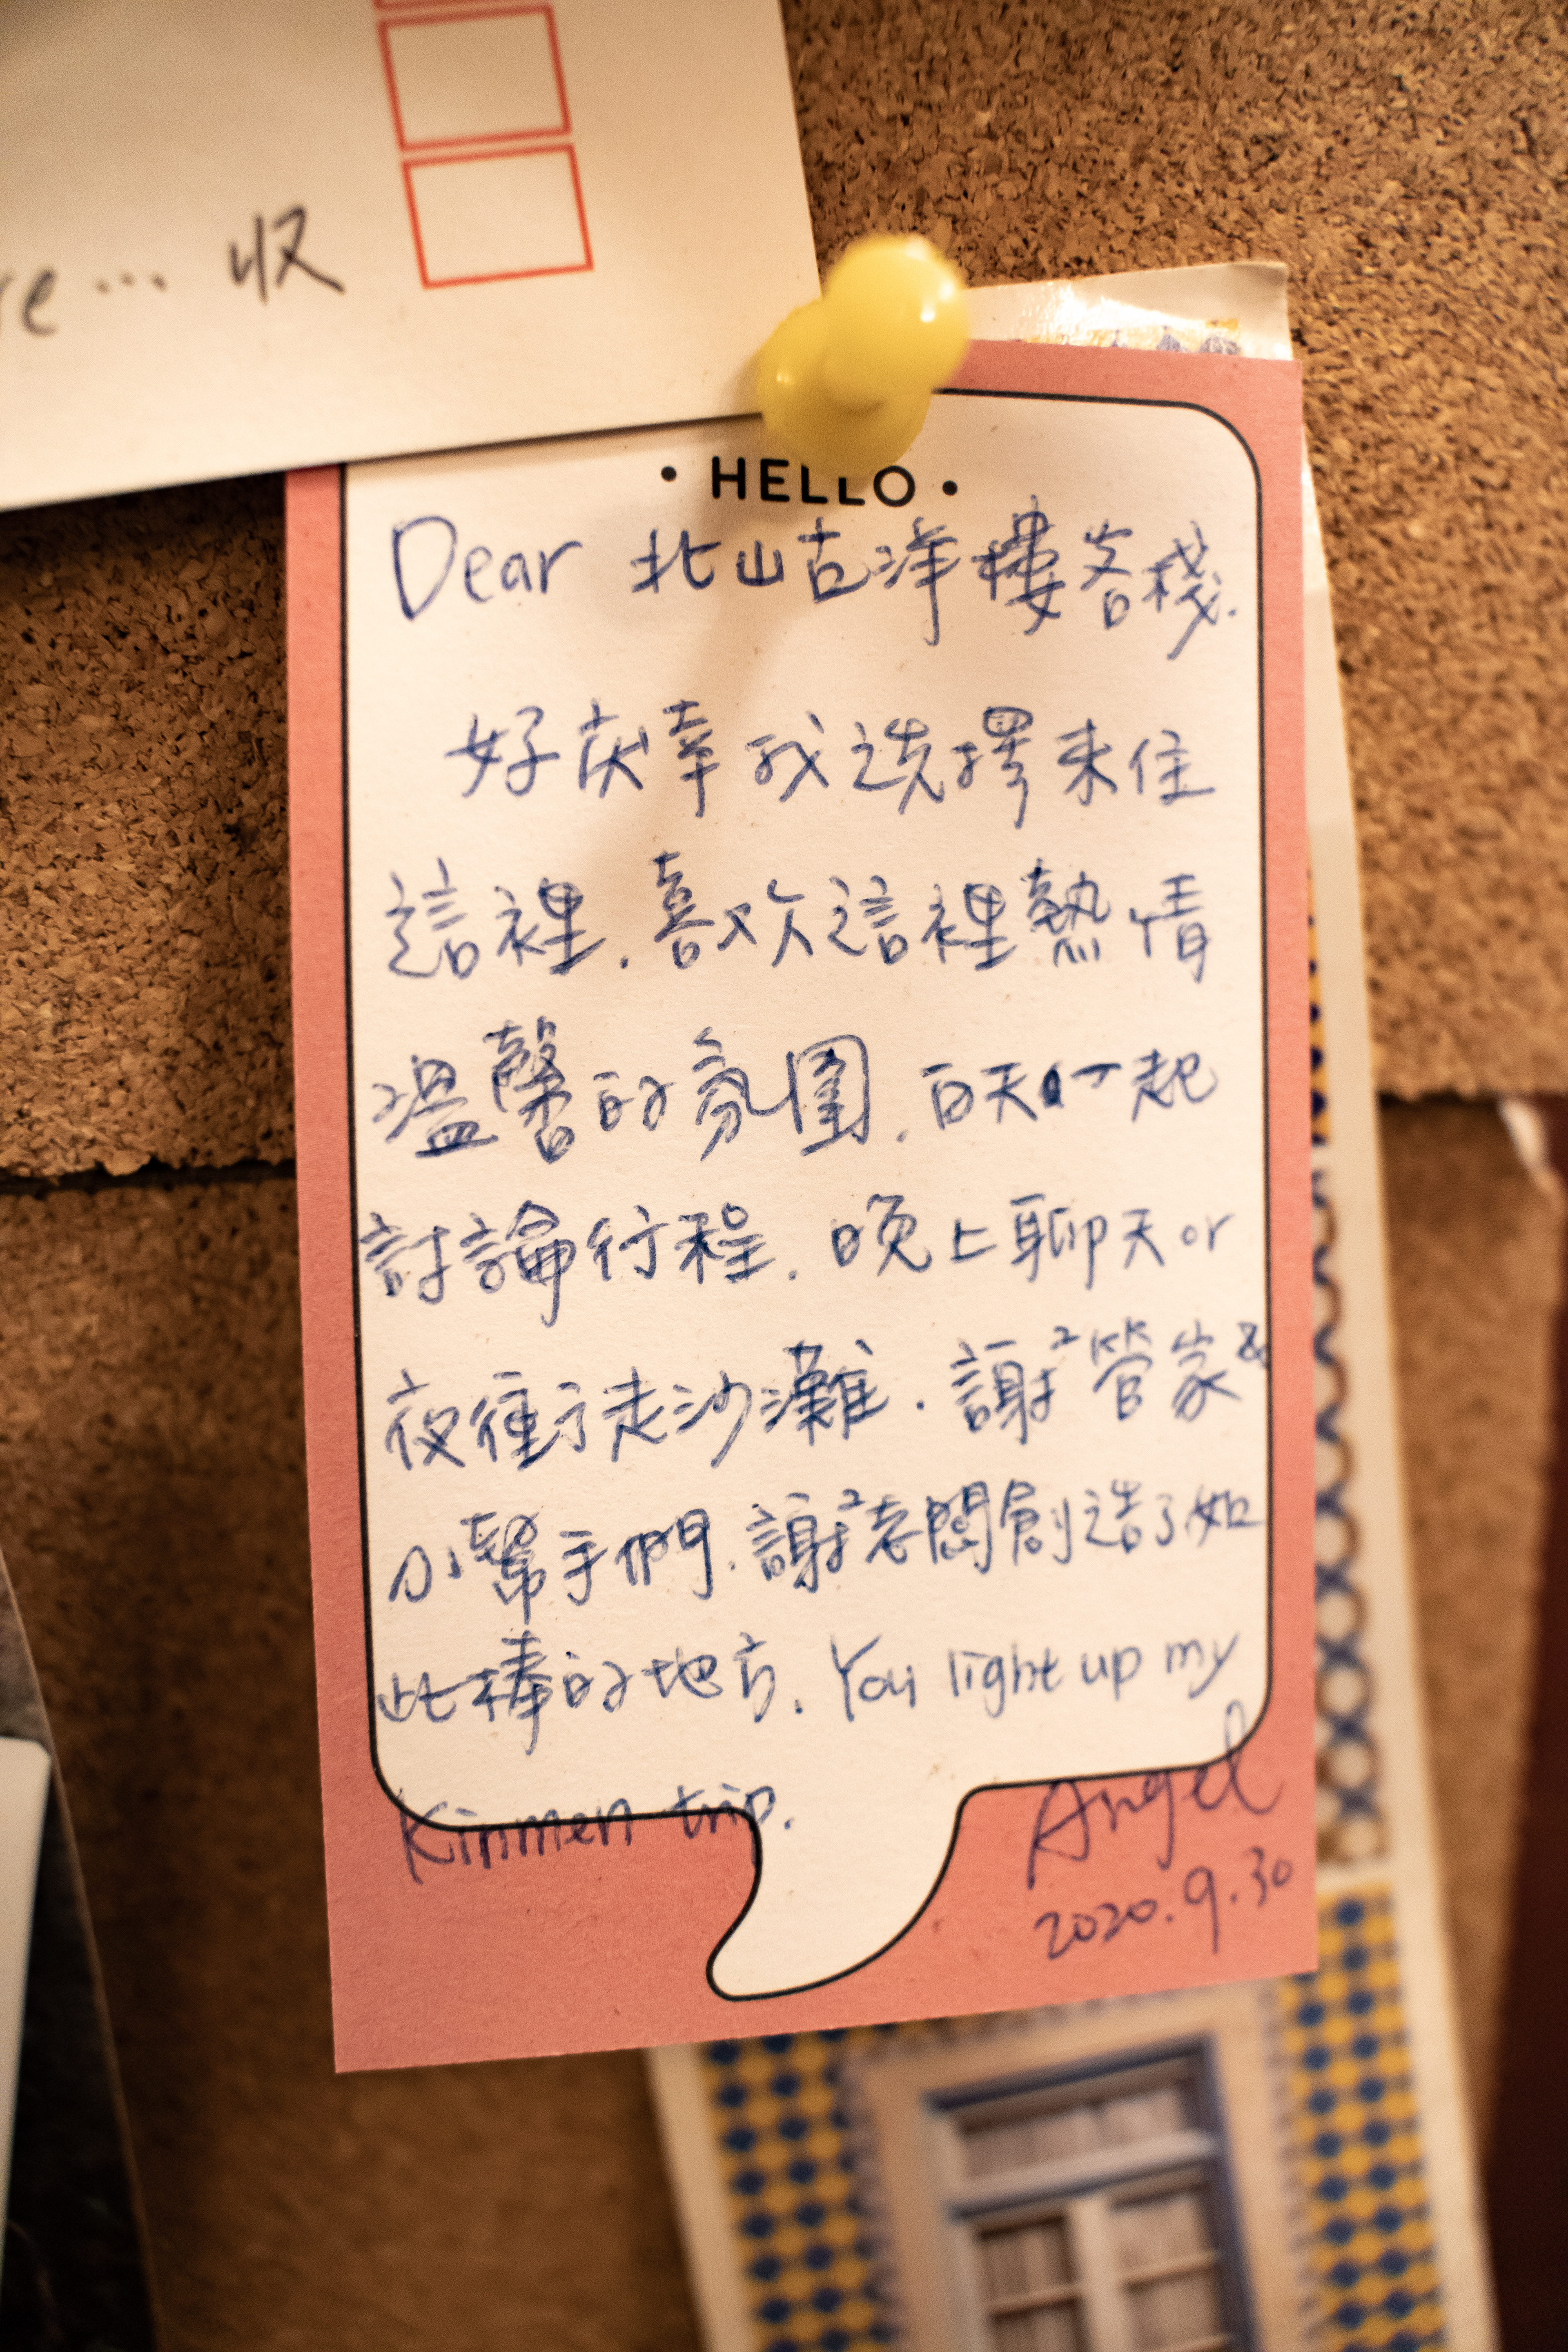 re... 收
• HELLO •
Dear 北山古洋樓客棧.
好荻幸我選擇來住
這裡.喜欢這裡熱情
溫馨的氛圍.白天一起
討論行程.晚上聊天or
夜衝走沙灘.謝²管家&
小幫手們.謝²老闆創造了如
此棒的地方.You light up my
Kinmen trip.
Angel
2020.9.30